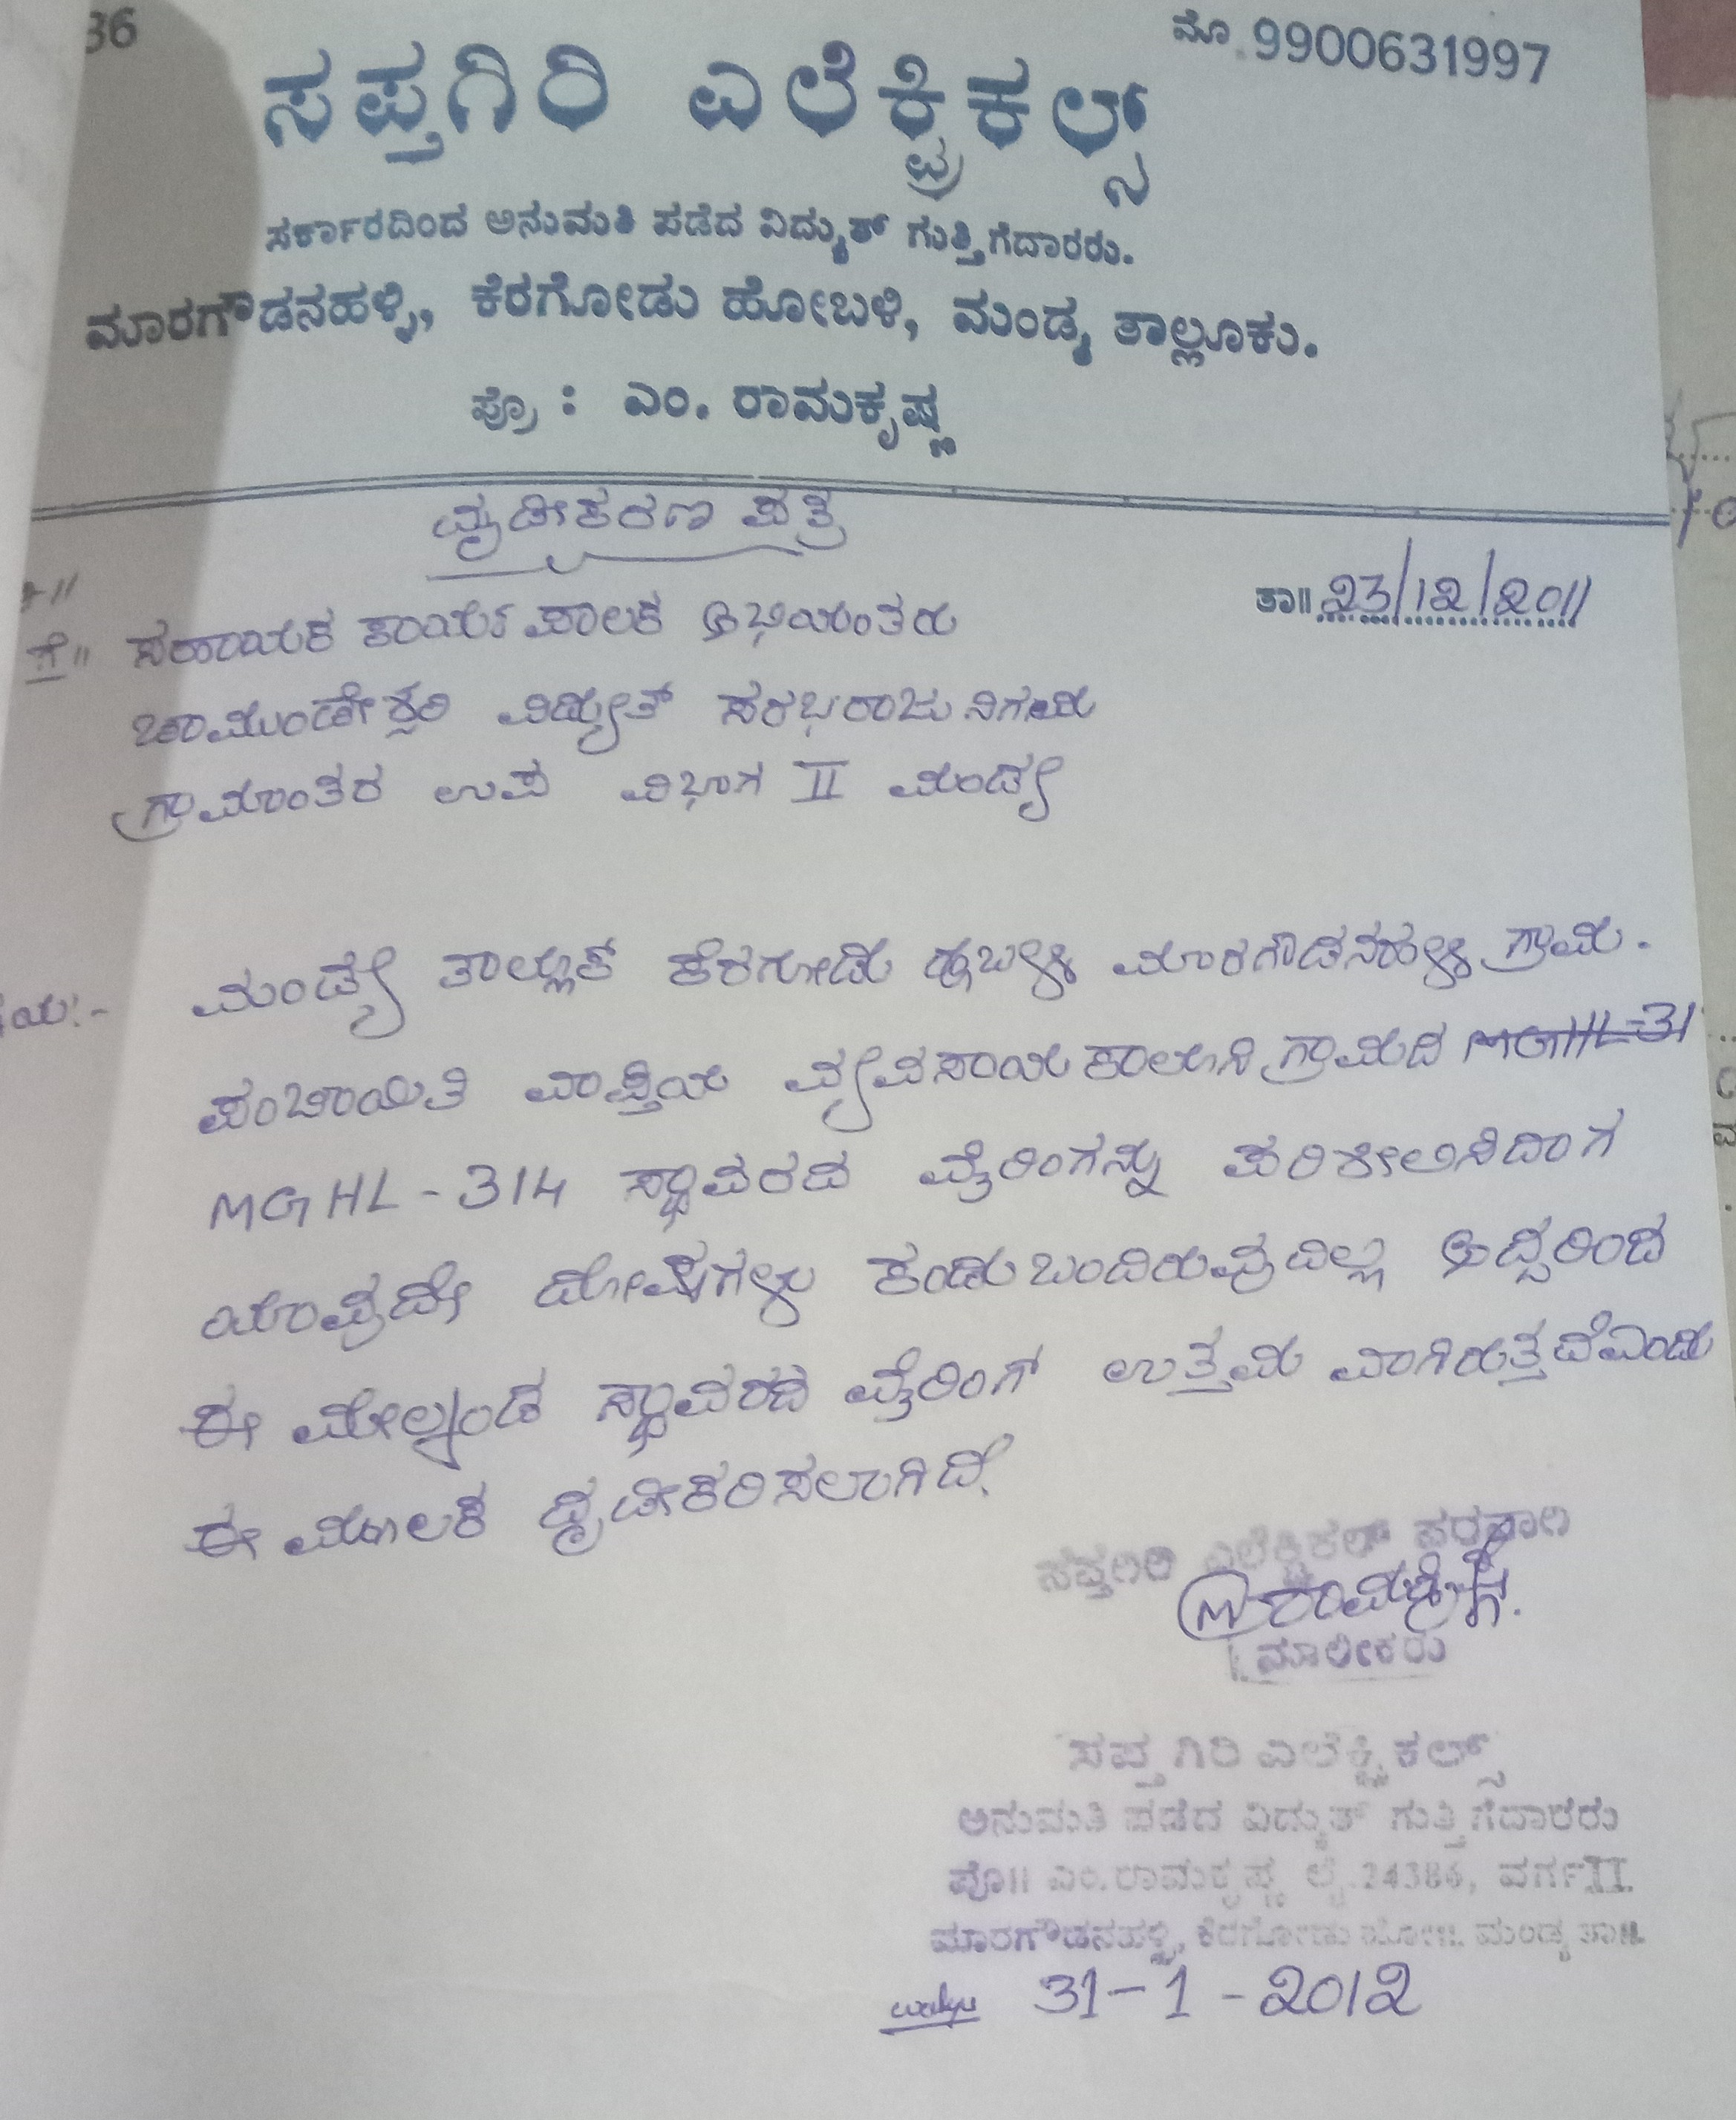 36
ಮೊ. 9900631997
ಸಪ್ತಗಿರಿ ಎಲೆಕ್ಟ್ರಿಕಲ್ಸ್
ಸರ್ಕಾರದಿಂದ ಅನುಮತಿ ಪಡೆದ ವಿದ್ಯುತ್ ಗುತ್ತಿಗೆದಾರರು.
ಮಾರಗೌಡನಹಳ್ಳಿ, ಕೆರಗೋಡು ಹೋಬಳಿ, ಮಂಡ್ಯ ತಾಲ್ಲೂಕು.
ಪ್ರೊ : ಎಂ. ರಾಮಕೃಷ್ಣ
ದೃಢೀಕರಣ ಪತ್ರ
ತಾ॥ 23/12/2011
ಗೆ॥ ಸಹಾಯಕ ಕಾರ್ಯಪಾಲಕ ಅಭಿಯಂತರು
ಚಾಮುಂಡೇಶ್ವರಿ ವಿದ್ಯುತ್ ಸರಬರಾಜು ನಿಗಮ
ಗ್ರಾಮಾಂತರ ಉಪ ವಿಭಾಗ II ಮಂಡ್ಯ
ಮಂಡ್ಯ ತಾಲ್ಲೂಕ್ ಕೆರಗೋಡು ಹೋಬಳಿ ಮಾರಗೌಡನಹಳ್ಳಿ ಗ್ರಾಮ.
ಪಂಚಾಯಿತಿ ವಾಪ್ತಿಯ ವ್ಯವಸಾಯ ಗ್ರಾಮದ MGHL-31
MGHL-314 ಸ್ಥಾವರದ ವೈರಿಂಗನ್ನು ಪರಿಶೀಲಿಸಿದಾಗ
ಯಾವುದೇ ದೋಷಗಳು ಕಂಡು ಬಂದಿರುವುದಿಲ್ಲ ಆದ್ದರಿಂದ
ಈ ಮೇಲ್ಕಂಡ ಸ್ಥಾವರದ ವೈರಿಂಗ್ ಉತ್ತಮ ವಾಗಿರುತ್ತದೆಎಂದು
ಈ ಮೂಲಕ ದೃಢೀಕರಿಸಲಾಗಿದೆ.
ಸಪ್ತಗಿರಿ ಎಲೆಕ್ಟ್ರಿಕಲ್ ಪರವಾಗಿ
M ರಾಮಕೃಷ್ಣ.
ಮಾಲೀಕರು
ಸಪ್ತಗಿರಿ ಎಲೆಕ್ಟ್ರಿಕಲ್ಸ್
ಅನುಮತಿ ಪಡೆದ ವಿದ್ಯುತ್ ಗುತ್ತಿಗೆದಾರರು
ಪ್ರೊ॥ ಎಂ.ರಾಮಕೃಷ್ಣ ಲೈ. 24386, ವರ್ಗ II
ಮಾರಗೌಡನಹಳ್ಳಿ, ಕೆರಗೋಡು ಹೋ॥. ಮಂಡ್ಯ ತಾ॥.
31-1-2012